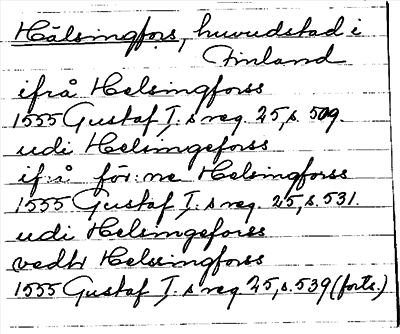 Hälsingfors, huvudstad i
Finland
ifrå Helsingforss
1555 Gustaf I.s reg. 25, s. 509.
udi Helsingeforss
ifrå för:ne Helsingforss
1555 Gustaf I.s reg. 25, s. 531.
udi Helsingeforss
vedh Helssingforss
1555 Gustaf I.s reg. 25, s. 539 (forts.)